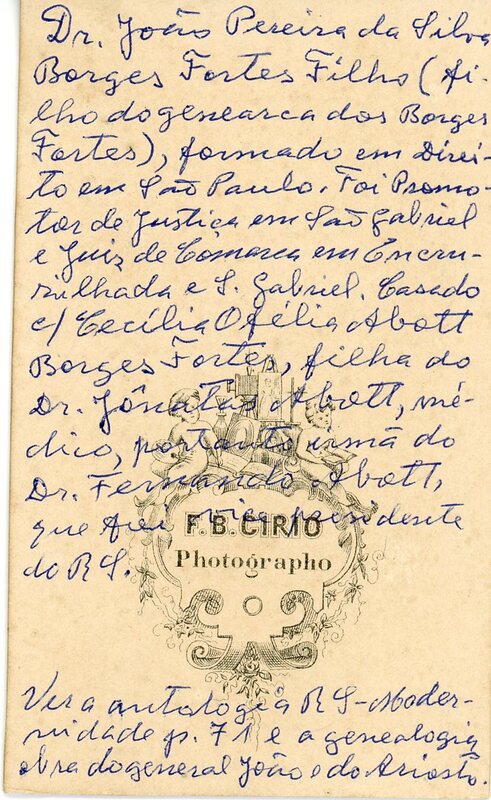 Dr. João Pereira da Silva
Borges Fortes Filho (fi-
lho do genearca dos Borges
Fortes), formado em Direi-
to em São Paulo. Foi Promo-
tor de Justiça em São Gabriel
e Juiz de Comarca em Encru-
zilhada e S. Gabriel. Casado
c/ Cecília Ofélia Abott
Borges Fortes, filha do
Dr. Jônatas Abott, mé-
dico, portanto irmã do
Dr. Fernando Abott,
que foi vice presidente
F.B. CIRIO
do RS.
Photographo
Ver a antologia RS-Moder-
nidade p. 71 e a genealogia
obra do general João e do Ariosto.